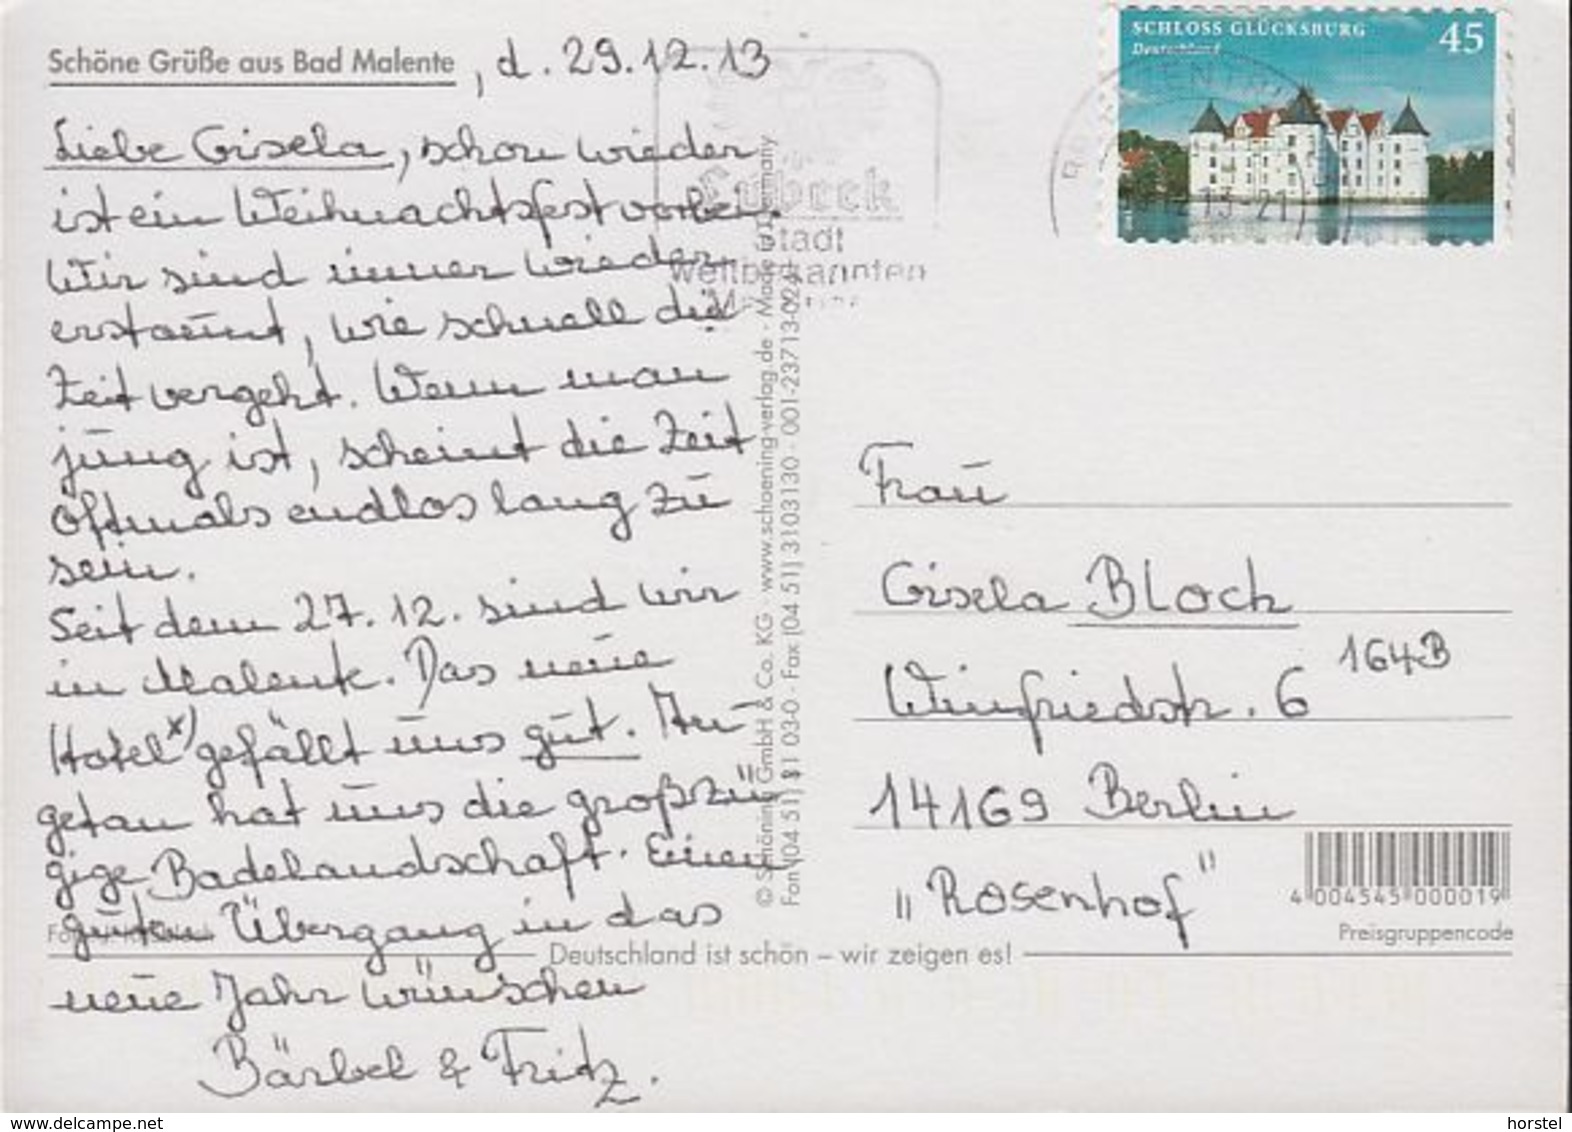 Schöne Grüße aus Bad Malente, d. 29.12.13
Liebe Gisela, schon wieder
ist ein Weihnachtsfest vorbei.
Wir sind immer wieder
erstaunt, wie schnell die
Zeit vergeht. Wenn man
jung ist, scheint die Zeit
oftmals endlos lang zu
sein.
Seit dem 27.12. sind wir
in Malente. Das neue
Hotel x) gefällt uns gut. An-
getan hat uns die großzü-
gige Badelandschaft. Einen
guten Übergang in das
neue Jahr wünschen
Bärbel & Fritz.
© Schöning GmbH & Co. KG · www.schoening-verlag.de · Made in Germany
Fon (04 51) 31 03-0 · Fax (04 51) 3103130 · 001-23713-024
Lübeck
Stadt
weltbekannten
SCHLOSS GLÜCKSBURG
Deutschland
45
13-21
Frau
Gisela Bloch
Winfriedstr. 6 164B
14169 Berlin
"Rosenhof"
4 004545 000019
Preisgruppencode
Deutschland ist schön – wir zeigen es!
www.delcampe.net
horstel